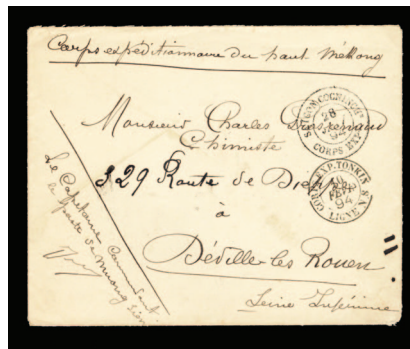 Corps expéditionnaire du haut Mékong
Monsieur Charles
Chimiste
29 Route de
à
Déville-les Rouen
Seine Inférieure
Le Capitaine Commandant
le poste de Muong
SAIGON COCHINCH
28
94
CORPS EXP
CORR. EXP. TONKIN
10
FEVR
94
LIGNE N